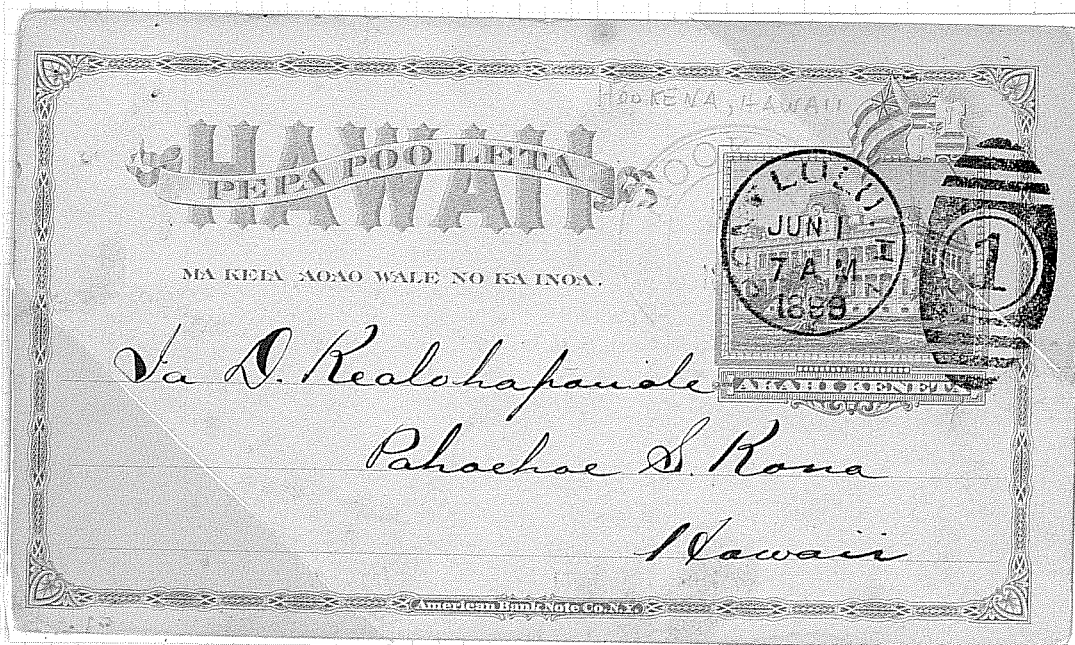 HOOKENA, HAWAII
HAWAII
PEPA POO LETA
MA KEIA AOAO WALE NO KA INOA.
HONOLULU H.I.
JUN 1
7 AM
1899
1
AKAHI KENETA
Ia D. Kealohapauole
Pahoehoe S. Kona
Hawaii
American Bank Note Co. N.Y.